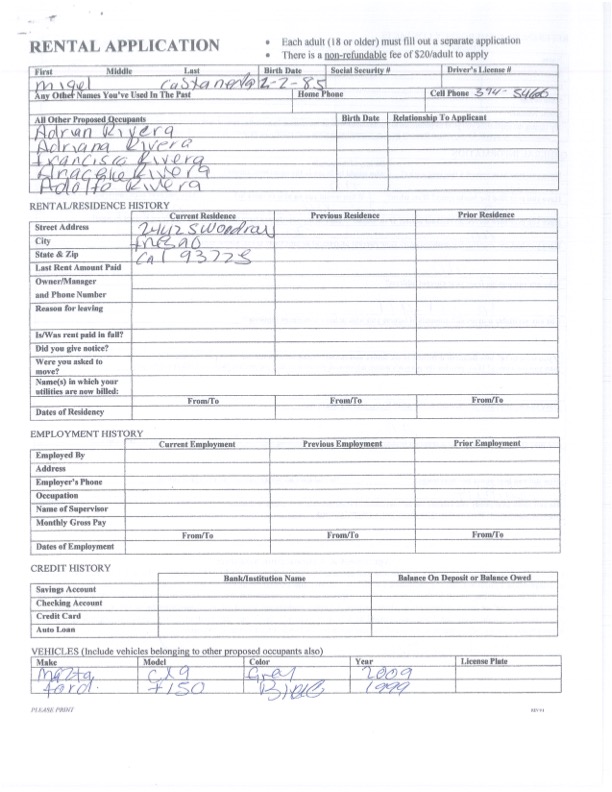 RENTAL APPLICATION
• Each adult (18 or older) must fill out a separate application
• There is a non-refundable fee of $20/adult to apply
First Middle Last Birth Date Social Security # Driver's License #
Migel Castaneda 2-2-85
Any Other Names You've Used In The Past Home Phone Cell Phone 394-5466
All Other Proposed Occupants Birth Date Relationship To Applicant
Adrian Rivera
Adriana Rivera
Francisco Rivera
Rivera
Adolfo Rivera
RENTAL/RESIDENCE HISTORY
Current Residence Previous Residence Prior Residence
Street Address 2442 S
City fresno
State & Zip Cal 93725
Last Rent Amount Paid
Owner/Manager
and Phone Number
Reason for leaving
Is/Was rent paid in full?
Did you give notice?
Were you asked to
move?
Name(s) in which your
utilities are now billed:
From/To From/To From/To
Dates of Residency
EMPLOYMENT HISTORY
Current Employment Previous Employment Prior Employment
Employed By
Address
Employer's Phone
Occupation
Name of Supervisor
Monthly Gross Pay
From/To From/To From/To
Dates of Employment
CREDIT HISTORY
Bank/Institution Name Balance On Deposit or Balance Owed
Savings Account
Checking Account
Credit Card
Auto Loan
VEHICLES (Include vehicles belonging to other proposed occupants also)
Make Model Color Year License Plate
Mazta CX9 Gray 2009
ford. F150 1999
PLEASE PRINT